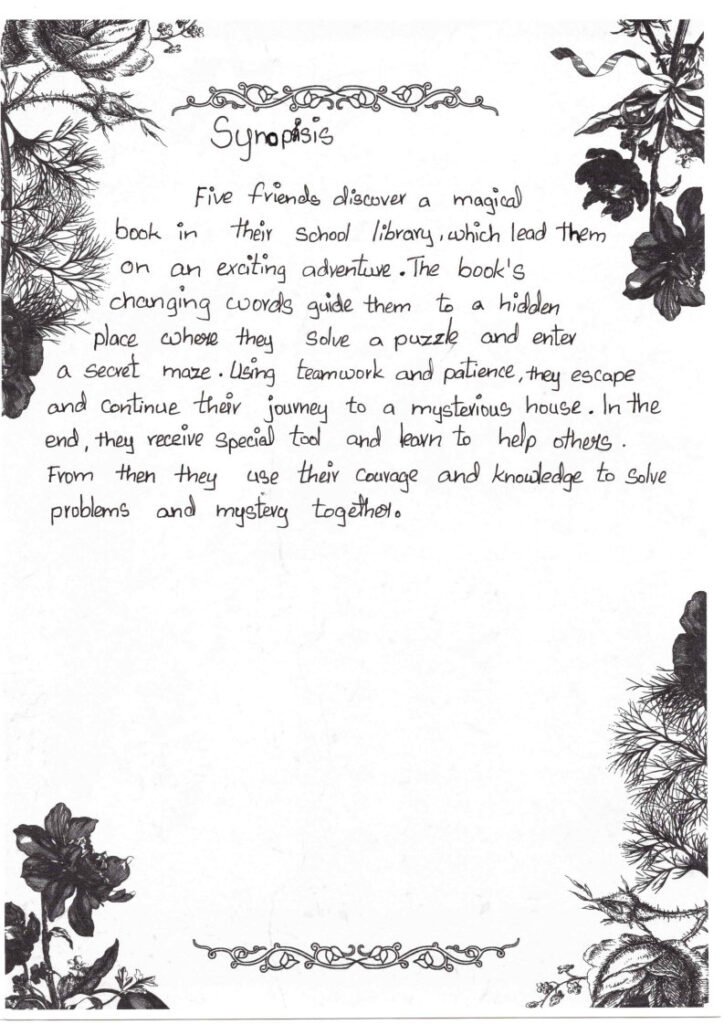 Synopisis
Five friends discover a magical
book in their school library, which lead them
on an exciting adventure. The book's
changing words guide them to a hidden
place where they solve a puzzle and enter
a secret maze. Using teamwork and patience, they escape
and continue their journey to a mysterious house. In the
end, they receive special tool and learn to help others.
From then they use their courage and knowledge to solve
problems and mystery together.